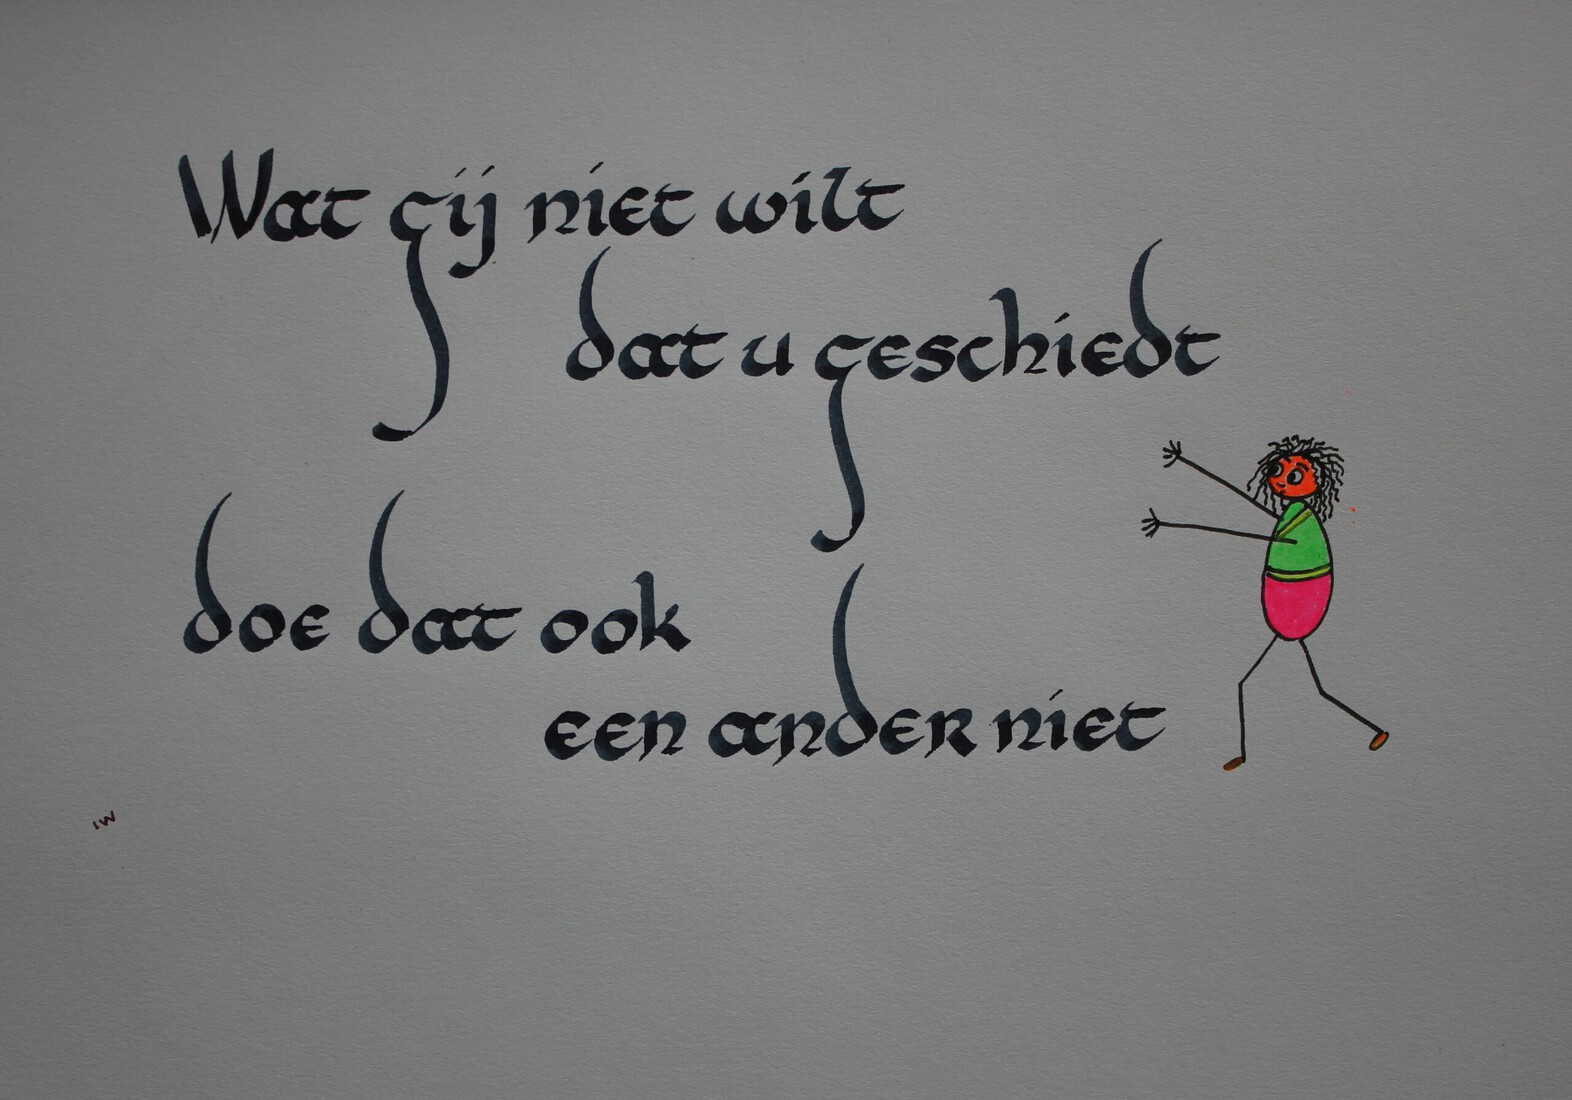 Wat gij niet wilt
dat u geschiedt
doe dat ook
een ander niet
IW